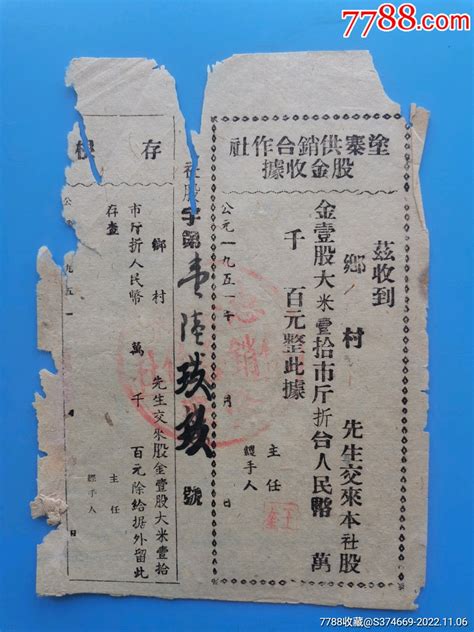 7788.com
塗寨供銷合作社
股金收據
茲收到
鄉 村 先生交來本社股
金壹股大米壹拾市斤折合人民幣 萬
千 百元整此據
主任
經手人
公元一九五一年 月 日
社股字第壹陸玖玖號
存根
鄉 村 先生交來股金壹股大米壹拾
市斤折人民幣 萬 千 百元除給据外留此
存查
主任
經手人
公 九五一
7788收藏@S374669-2022.11.06